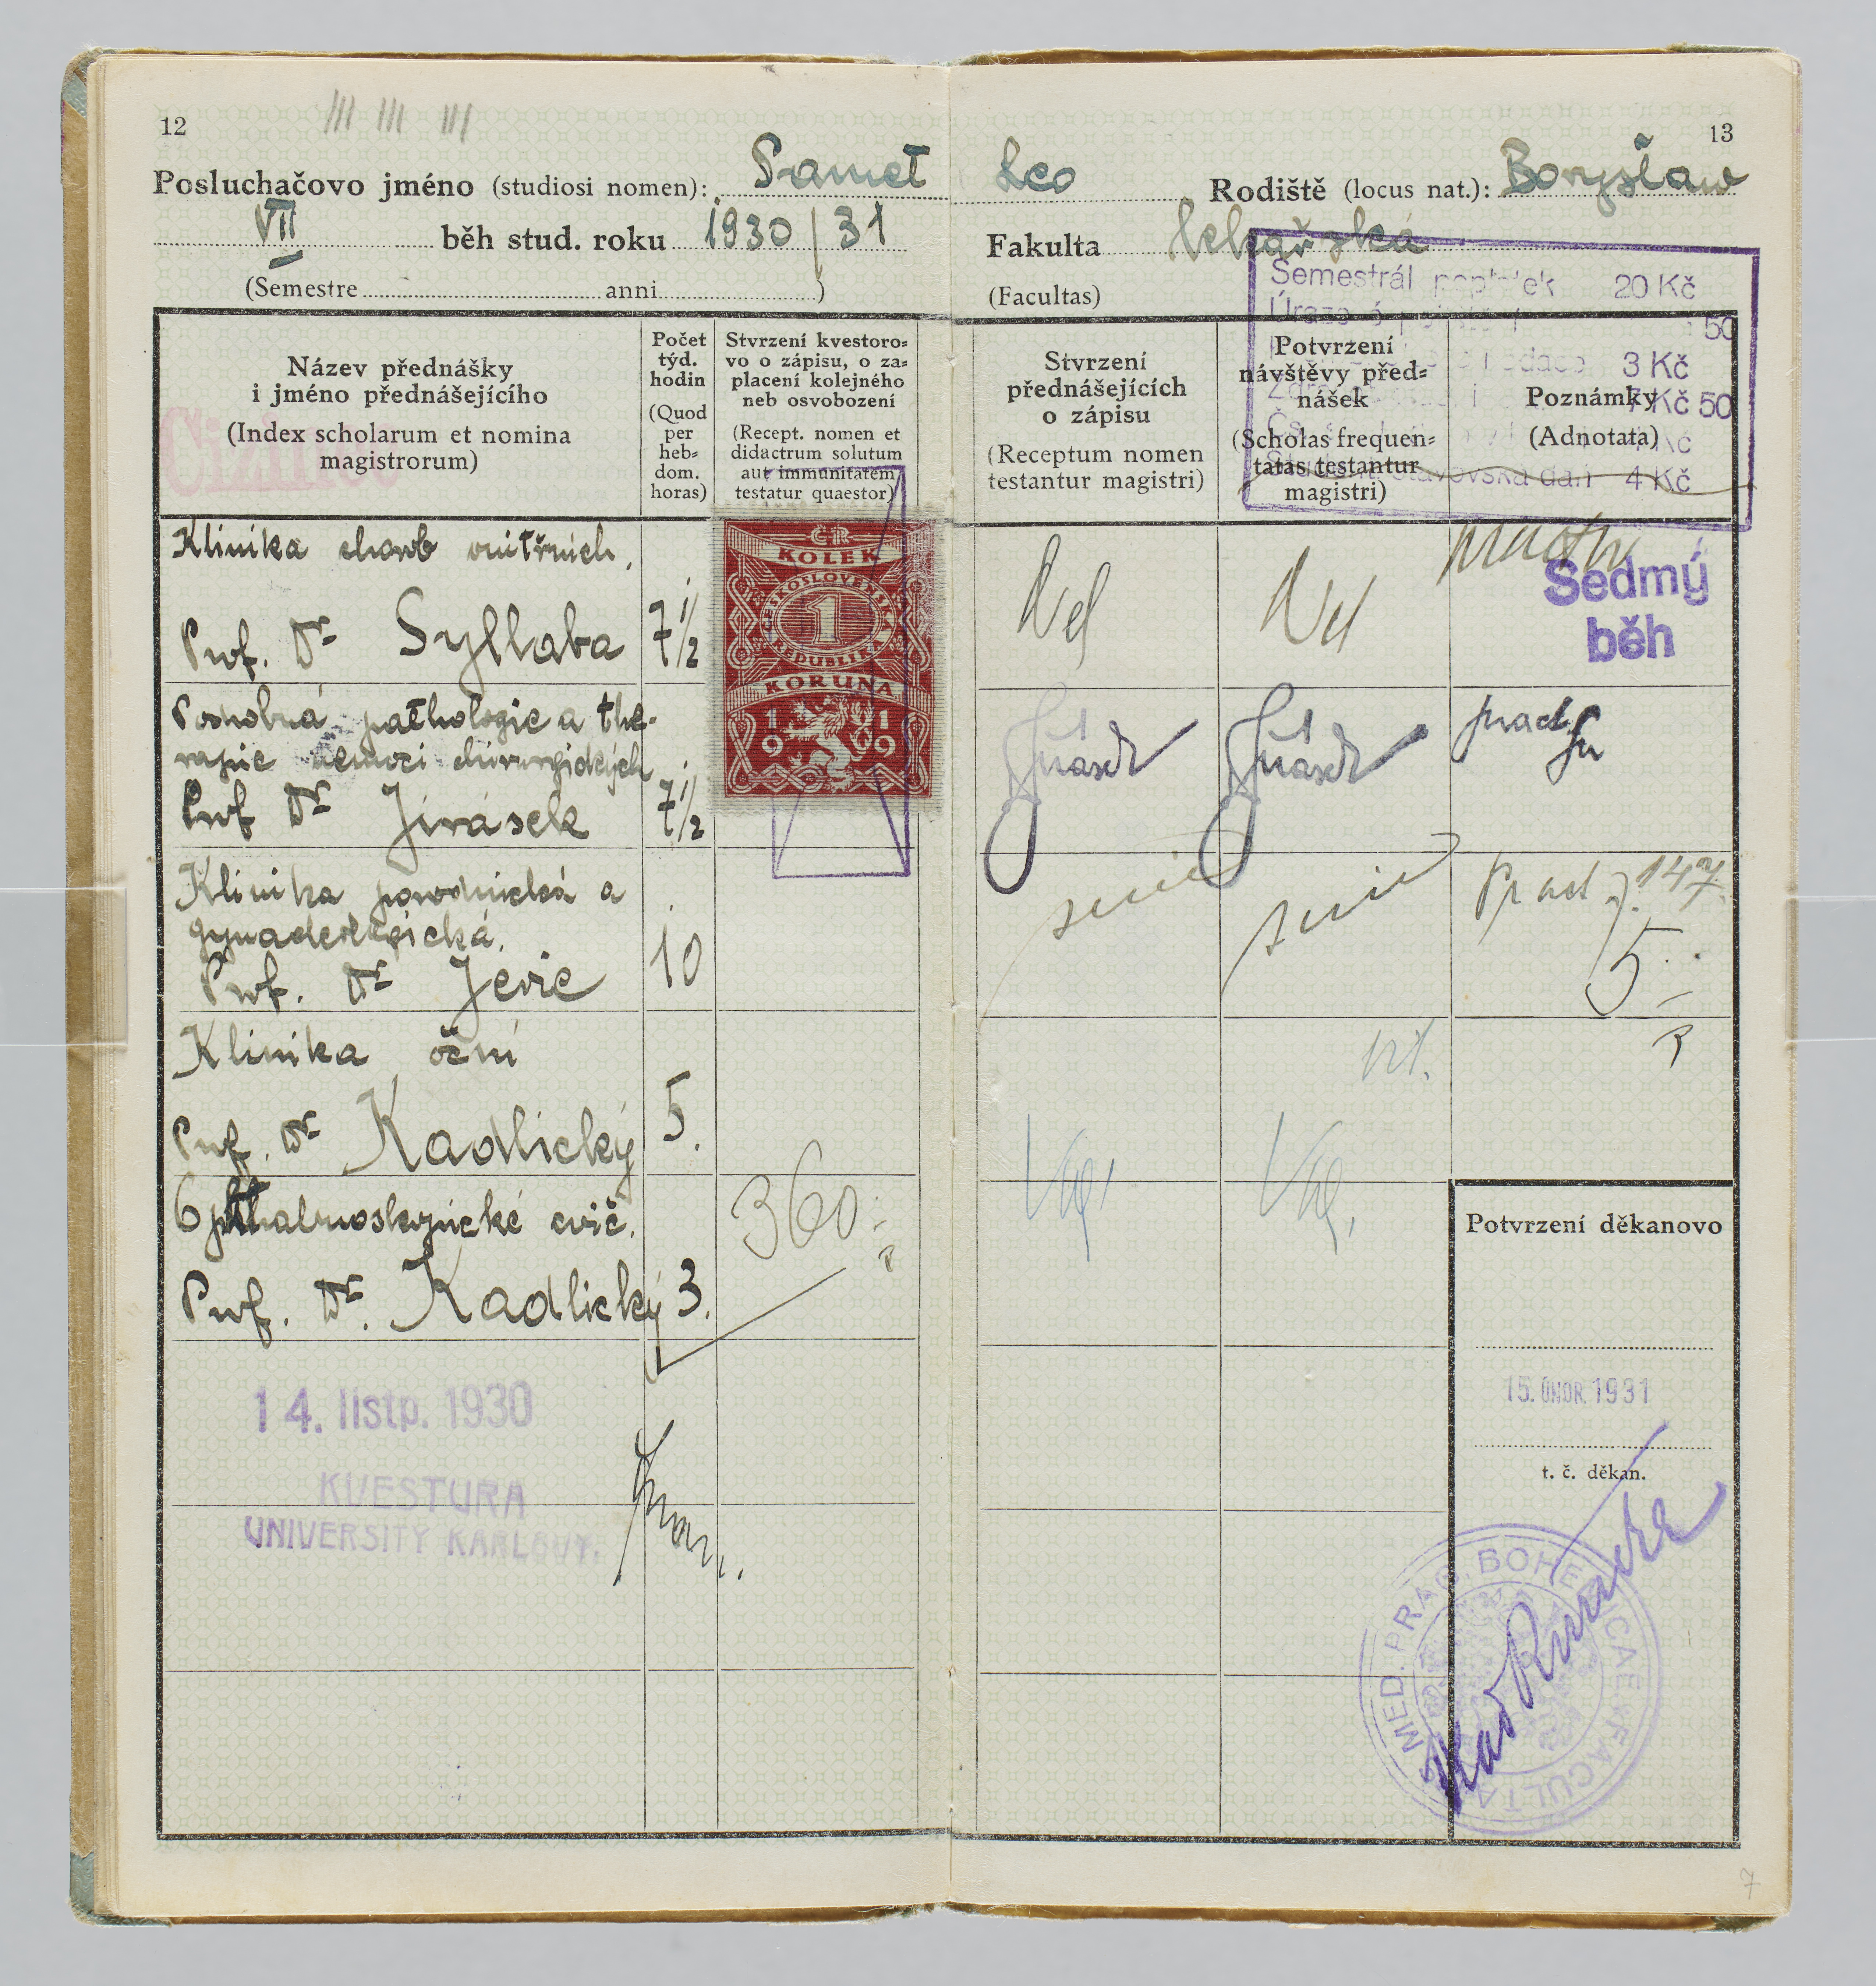 12
Posluchačovo jméno (studiosi nomen): Samet Leo Rodiště (locus nat.): Borysław
13
VII běh stud. roku 1930/31 Fakulta lékařská
(Semestre anni ) (Facultas)
Semestrál poplatek 20 Kč
50
3 Kč
7 Kč 50
Kč
4 Kč
Název přednášky
i jméno přednášejícího
(Index scholarum et nomina
magistrorum)
Počet
týd.
hodin
(Quod
per
heb=
dom.
horas)
Stvrzení kvestoro=
vo o zápisu, o za=
placení kolejného
neb osvobození
(Recept. nomen et
didactrum solutum
aut immunitatem
testatur quaestor)
Stvrzení
přednášejících
o zápisu
(Receptum nomen
testantur magistri)
Potvrzení
návštěvy před=
nášek
(Scholas frequen=
tatas testantur
magistri)
Poznámky
(Adnotata)
Cizinec
Klinika chorob vnitřních.
Prof. Dr Syllaba 7 1/2
ČR
KOLEK
ČESKOSLOVENSKÁ
1
REPUBLIKA
KORUNA
1919
Sedmý
běh
Podrobná pathologie a the-
rapie nemocí chirurgických
Prof Dr Jirásek 7 1/2
Jirásek Jirásek prad
Klinika porodnická a
gynaekologická.
Prof. Dr Jerie 10
prad 147
5
Klinika oční
Prof. Dr Kadlický 5.
Ophthalmoskopické cvič.
Prof. Dr. Kadlický 3.
360.-
Potvrzení děkanovo
14. listp. 1930
KVESTURA
UNIVERSITY KARLOVY.
15. ÚNOR 1931
t. č. děkan.
MED. PRAG. BOHEMICAE FACULTA
Kar Růžička
7